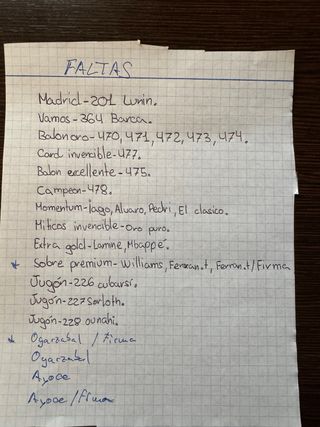 FALTAS
Madrid-201 Lunin.
Vamos-364 Barca.
Balon oro-470, 471, 472, 473, 474.
Card invencible-477.
Balon excellente-475.
Campeon-478.
Momentum-Iago, Alvaro, Pedri, El clasico.
Miticos invencible-Oro puro.
Extra gold-Lamine, Mbappé.
* Sobre premium-Williams, Ferran.t, Ferran.t/Firma
Jugón-226 cubarsi.
Jugón-227 Sorloth.
Jugón-228 ounahi.
* Oyarzabal / Firma
Oyarzabal
Ayoce
Ayoce/Firma